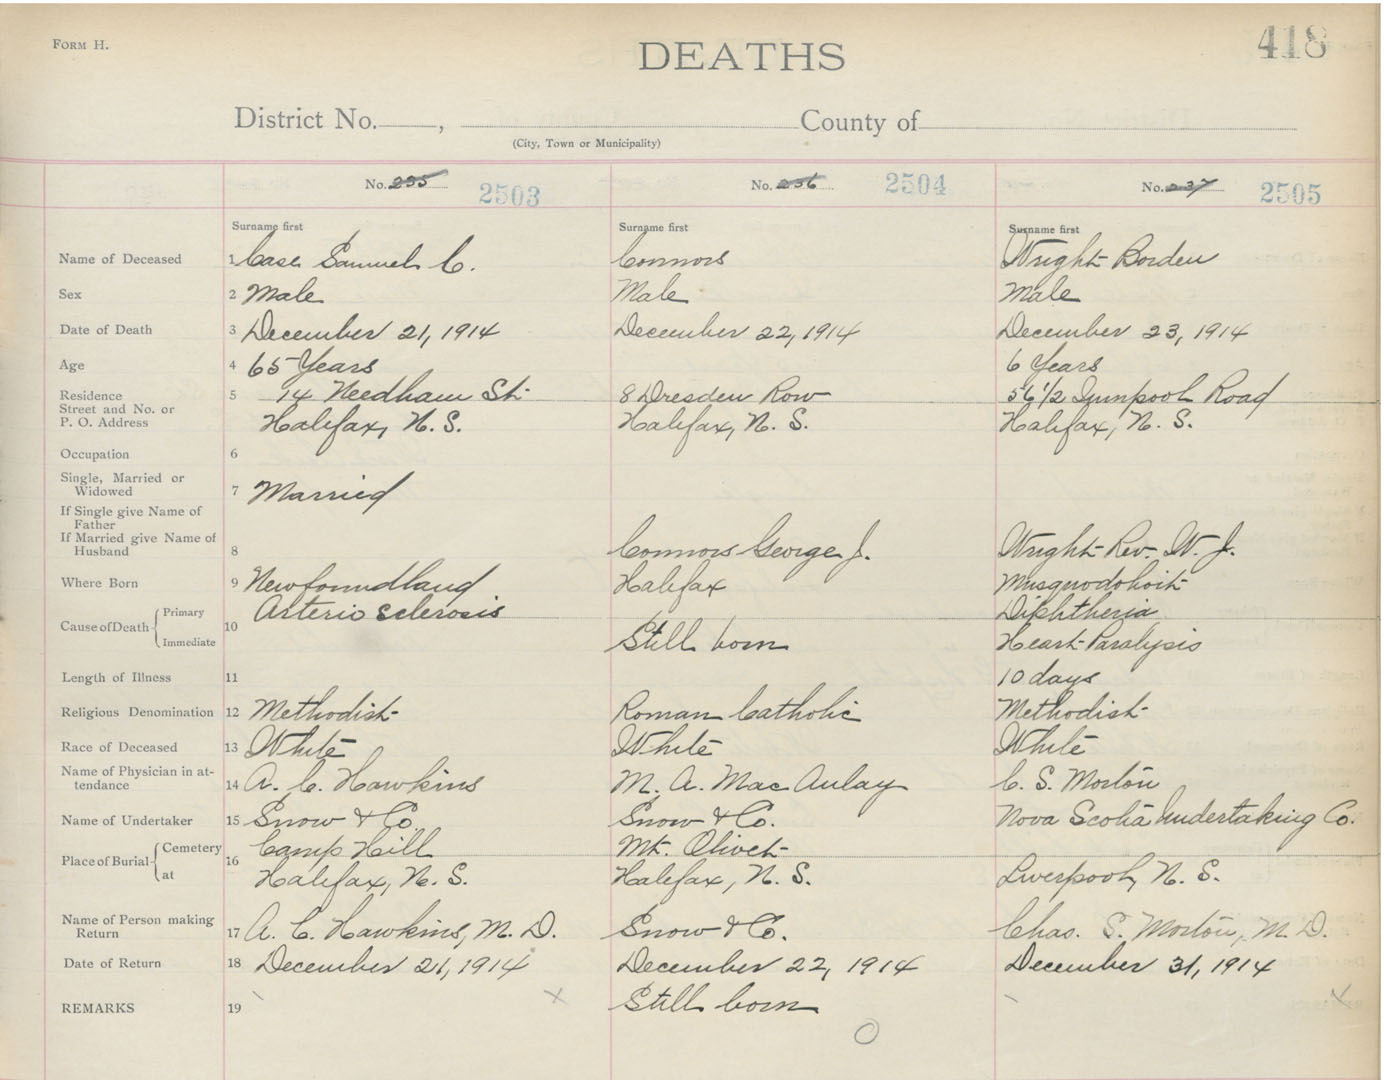 FORM H.
DEATHS
418
District No. , County of
(City, Town or Municipality)
No. 235 2503 No. 236 2504 No. 237 2505
Surname first Surname first Surname first
Name of Deceased 1 Case Samuel C. Connors Wright Borden
Sex 2 Male Male Male
Date of Death 3 December 21, 1914 December 22, 1914 December 23, 1914
Age 4 65 Years 6 Years
Residence 5 14 Needham St 8 Dresden Row 56 1/2 Quinpool Road
Street and No. or
P. O. Address Halifax, N. S. Halifax, N. S. Halifax, N. S.
Occupation 6
Single, Married or
Widowed 7 Married
If Single give Name of
Father
If Married give Name of
Husband 8 Connors George J. Wright Rev. W. J.
Where Born 9 Newfoundland Halifax Musquodoboit
Cause of Death Primary 10 Arterio sclerosis Diphtheria
Immediate Still born Heart Paralysis
Length of Illness 11 10 days
Religious Denomination 12 Methodist Roman Catholic Methodist
Race of Deceased 13 White White White
Name of Physician in at-
tendance 14 A. C. Hawkins M. A. MacAulay C. S. Morton
Name of Undertaker 15 Snow & Co. Snow & Co. Nova Scotia Undertaking Co.
Place of Burial Cemetery 16 Camp Hill Mt. Olivet
at Halifax, N. S. Halifax, N. S. Liverpool, N. S.
Name of Person making
Return 17 A. C. Hawkins, M. D. Snow & Co. Chas. S. Morton, M. D.
Date of Return 18 December 21, 1914 December 22, 1914 December 31, 1914
REMARKS 19 Still born